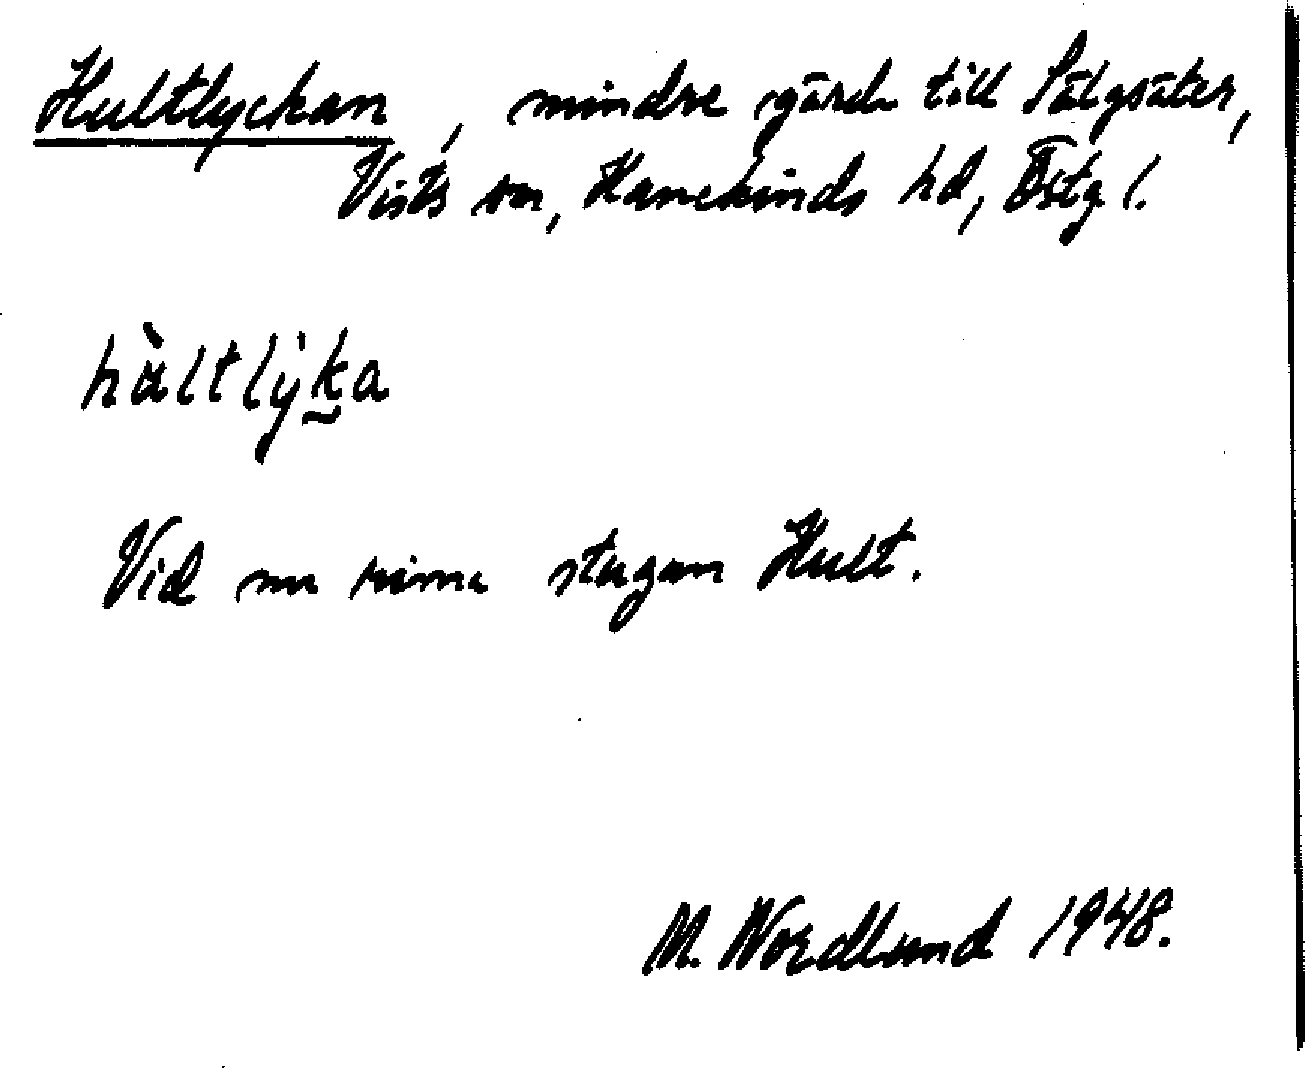 Hultlyckan, mindre gärde till Sälgsäter,
Vists sn, Hanekinds hd, Östg l.
hùltlỳk̮a
Vid nu rivna stugan Hult.
M. Nordlund 1948.